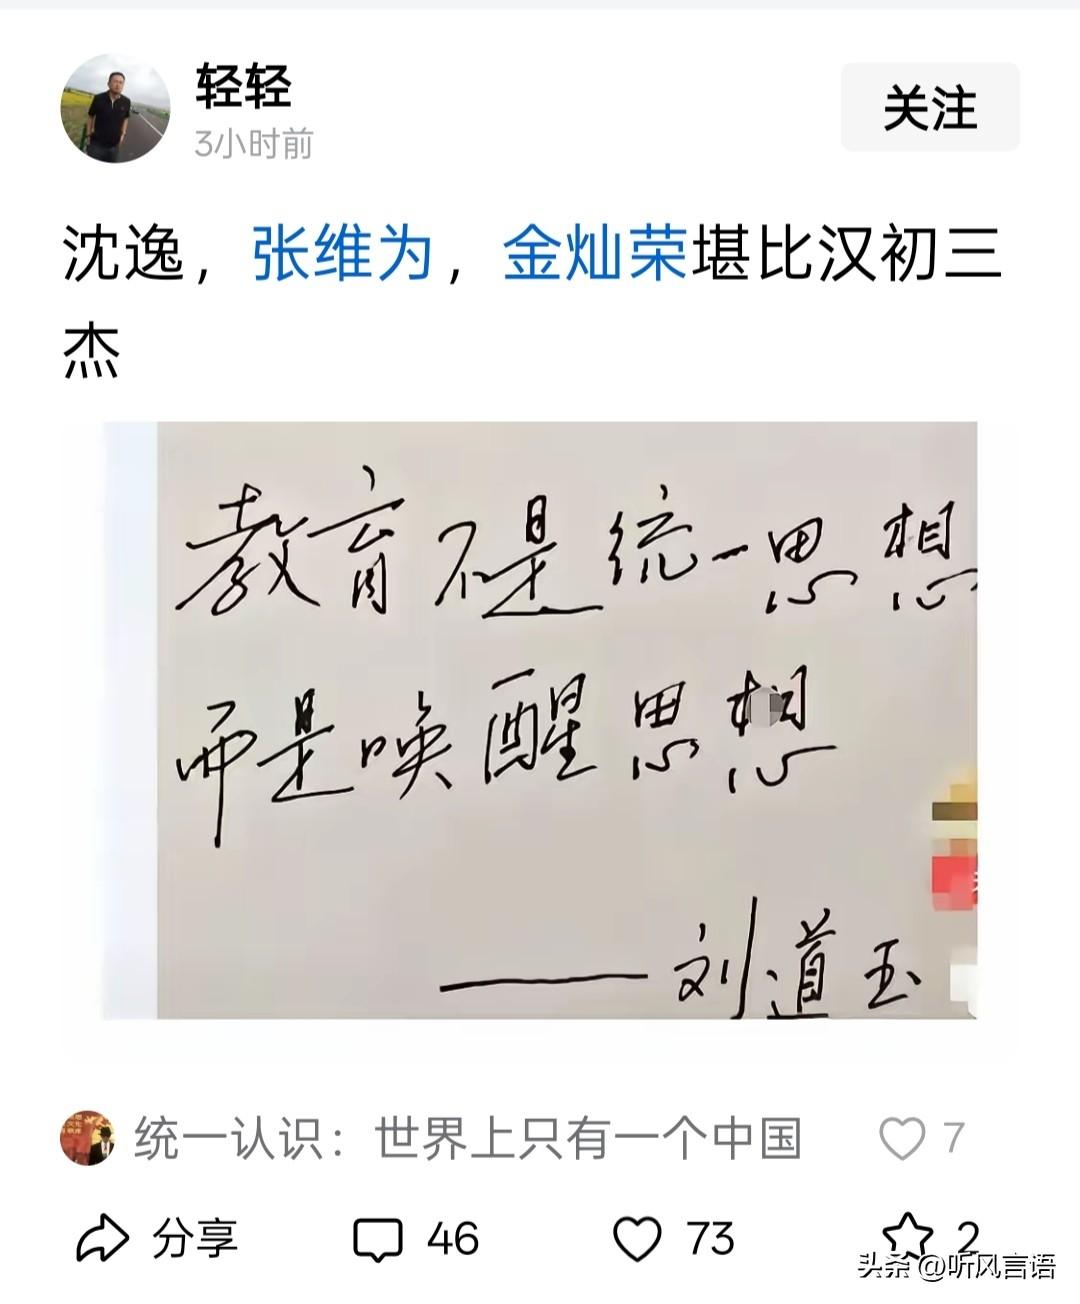 轻轻
3小时前
关注
沈逸，张维为，金灿荣堪比汉初三
杰
教育不是统一思想
而是唤醒思想
——刘道玉
统一认识：世界上只有一个中国
7
分享
46
73
2
头条 @听风言语